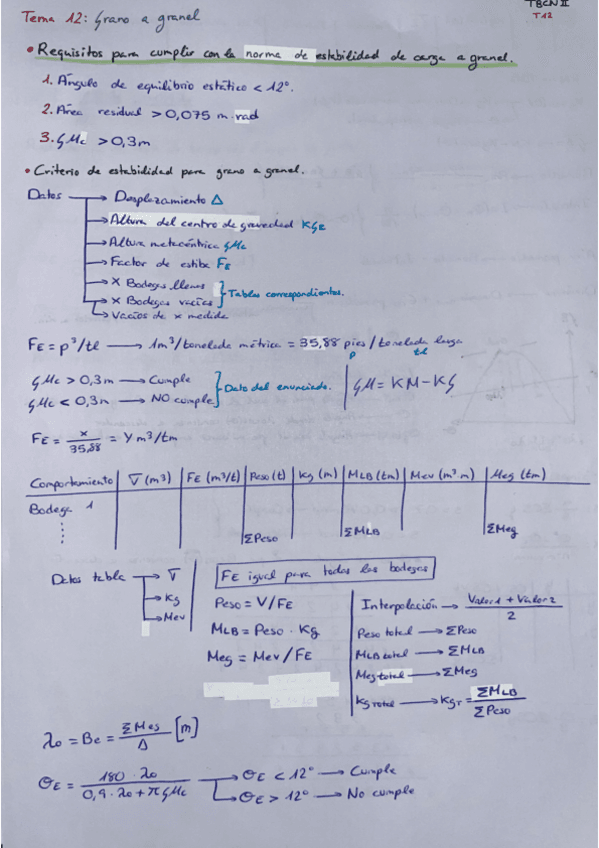 TBCN II
T12
Tema 12: Grano a granel
• Requisitos para cumplir con la norma de estabilidad de carga a granel.
1. Ángulo de equilibrio estático < 12°.
2. Área residual > 0,075 m·rad
3. GMc > 0,3 m
• Criterio de estabilidad para grano a granel.
Datos → Desplazamiento Δ
→ Altura del centro de gravedad KGE
→ Altura metacéntrica GMc
→ Factor de estiba FE
→ X Bodegas llenas
→ X Bodegas vacías } Tablas correspondientes.
→ Vacíos de x medida
FE = p³/tl → 1m³/tonelada métrica = 35,88 pies/tonelada larga
p tl
GMc > 0,3 m → Cumple
GMc < 0,3 m → NO cumple } Dato del enunciado.
GM = KM - KG
FE = x/35,88 = Y m³/tm
Compartimento | V (m³) | FE (m³/t) | Peso (t) | Kg (m) | MLB (tm) | Mev (m³·m) | Meg (tm)
Bodega 1
ΣPeso ΣMLB ΣMeg
Datos tabla → V
→ Kg
→ Mev
FE igual para todas las bodegas
Peso = V/FE
MLB = Peso · Kg
Meg = Mev/FE
Interpolación → Valor1 + Valor2 / 2
Peso total → ΣPeso
MLB total → ΣMLB
Meg total → ΣMeg
Kg total → KgT = ΣMLB / ΣPeso
λo = Be = ΣMeg / Δ [m]
ΘE = 180 · λo / 0,9 · λo + π GMc → ΘE < 12° → Cumple
→ ΘE > 12° → No cumple